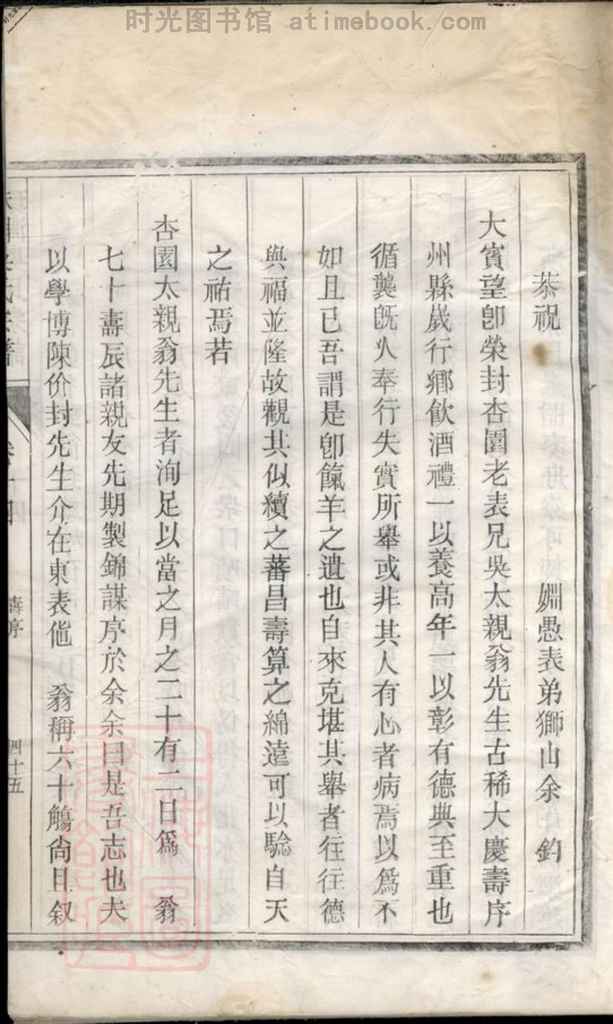 时光图书馆 atimebook.com
恭祝 姻愚表弟獅山余 鈞
大賓望卽榮封杏園老表兄吳太親翁先生古稀大慶壽序
州縣歲行鄉飲酒禮一以養高年一以彰有德典至重也
循襲旣久奉行失實所舉或非其人有心者病焉以爲不
如且已吾謂是卽餼羊之遺也自來克堪其舉者往往德
與福並隆故觀其似續之蕃昌壽算之綿遠可以驗自天
之祐焉若
杏園太親翁先生者洵足以當之月之二十有二日爲 翁
七十壽辰諸親友先期製錦謀序於余余曰是吾志也夫
以學博陳价封先生介在東表倦 翁稱六十觴尙且叙
壽序
四十五